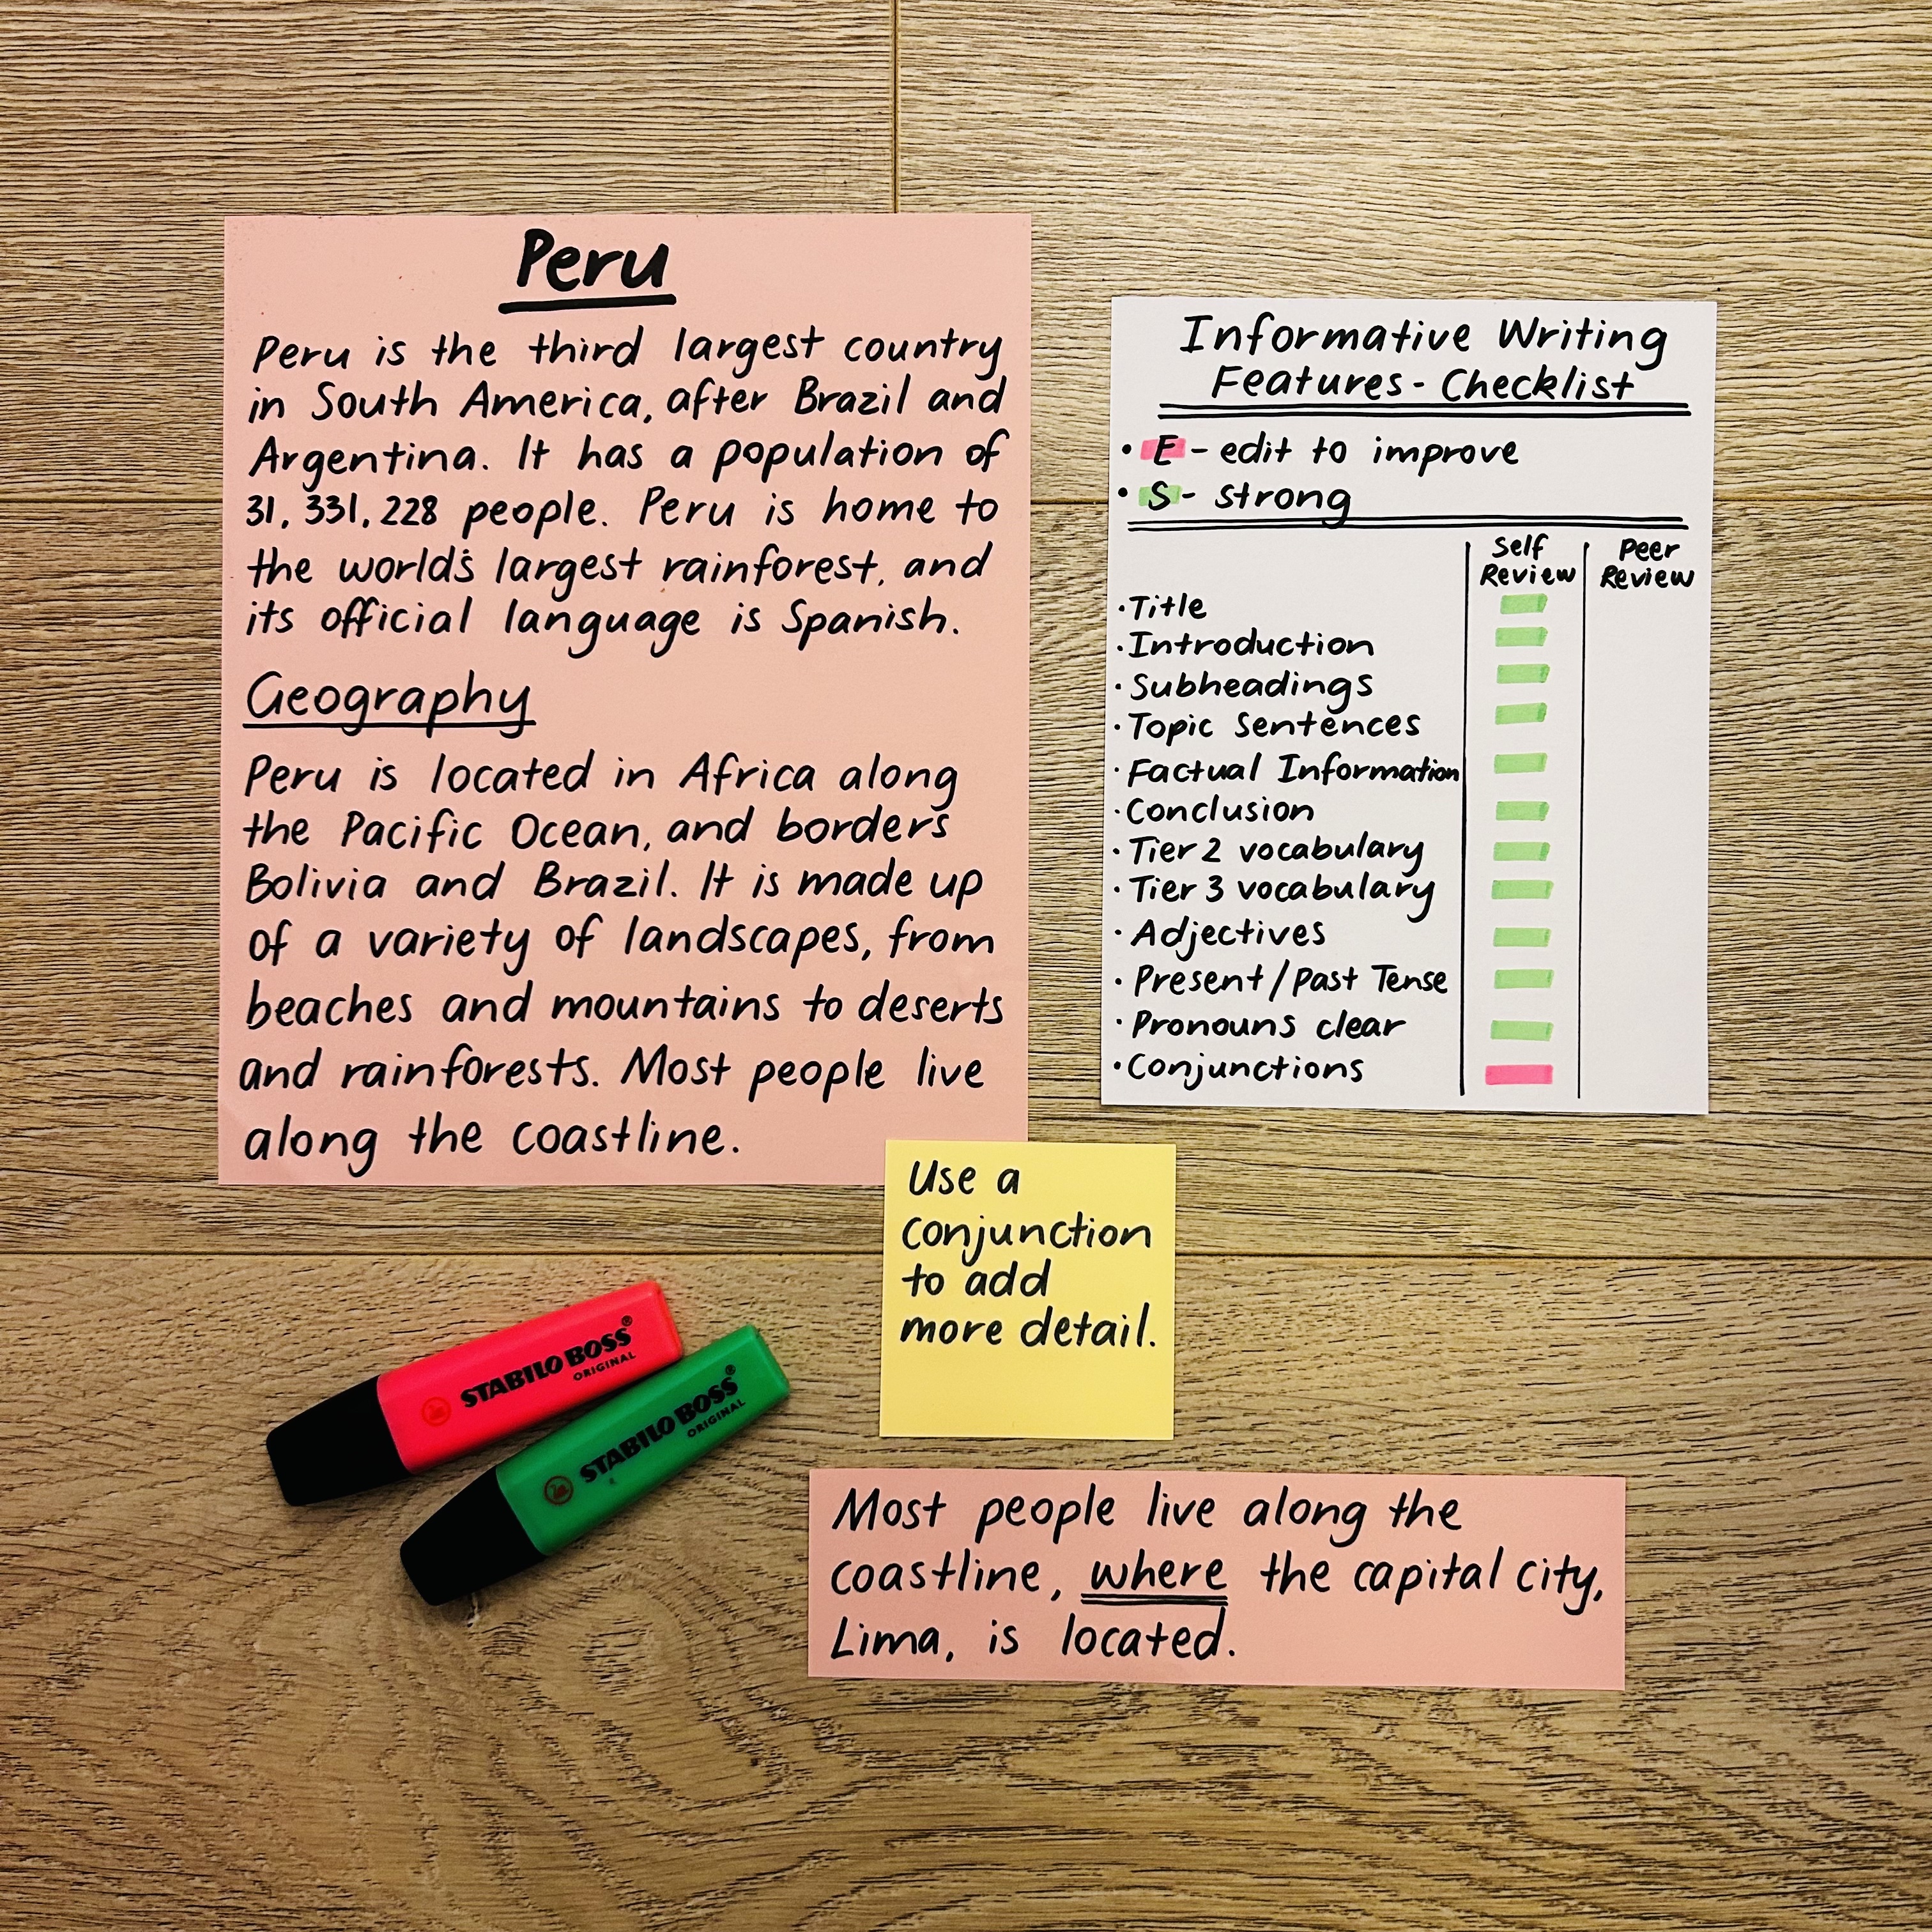 Peru
Peru is the third largest country
in South America, after Brazil and
Argentina. It has a population of
31, 331, 228 people. Peru is home to
the world's largest rainforest, and
its official language is Spanish.
Geography
Peru is located in Africa along
the Pacific Ocean, and borders
Bolivia and Brazil. It is made up
of a variety of landscapes, from
beaches and mountains to deserts
and rainforests. Most people live
along the coastline.
Informative Writing
Features - Checklist
• E - edit to improve
• S - strong
Self
Review
Peer
Review
• Title
• Introduction
• Subheadings
• Topic Sentences
• Factual Information
• Conclusion
• Tier 2 vocabulary
• Tier 3 vocabulary
• Adjectives
• Present/Past Tense
• Pronouns clear
• Conjunctions
Use a
conjunction
to add
more detail.
STABILO BOSS®
ORIGINAL
STABILO BOSS®
ORIGINAL
Most people live along the
coastline, where the capital city,
Lima, is located.